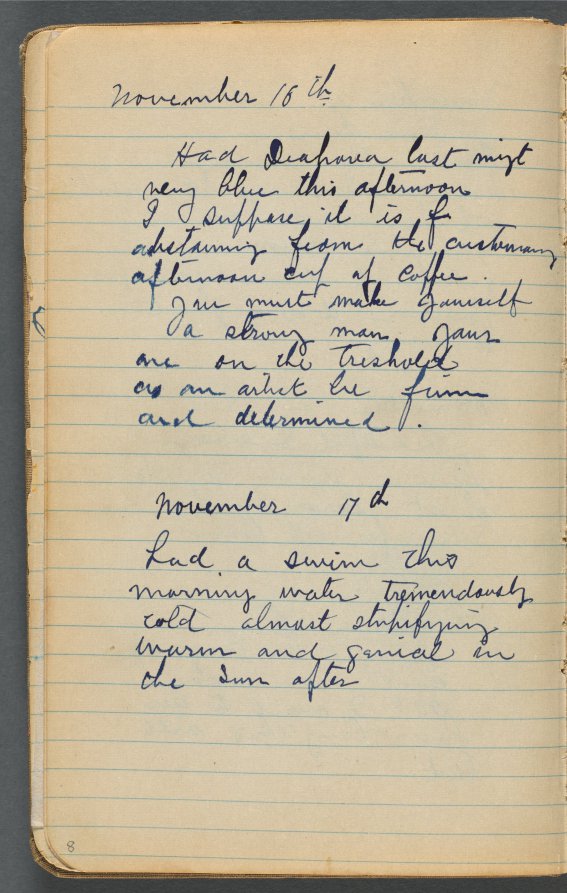 November 16th
Had Diaforea last night
very blue this afternoon
I suppose it is f
abstaining from the customary
afternoon cup of coffee.
You must make yourself
a strong man your
are on the treshold
as an artist be firm
and determined.
November 17th
had a swim this
morning water tremendously
cold almost stupifying
warm and genial in
the Sun after
8